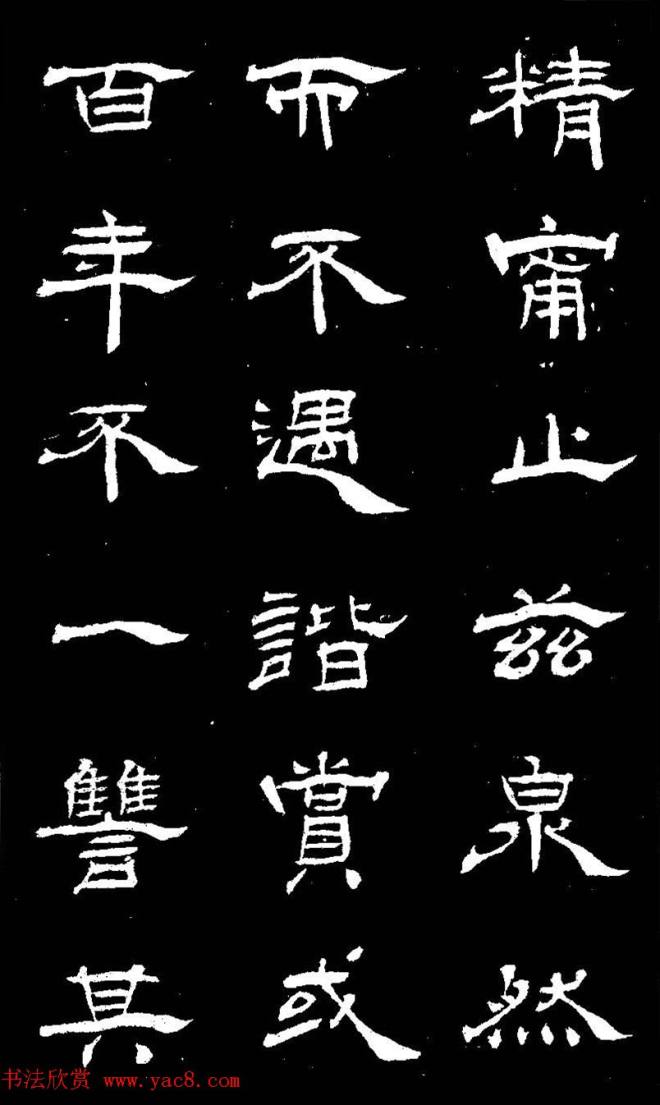 精甯止茲泉然
而不遇諧賞或
百年不一讐其
书法欣赏 www.yac8.com